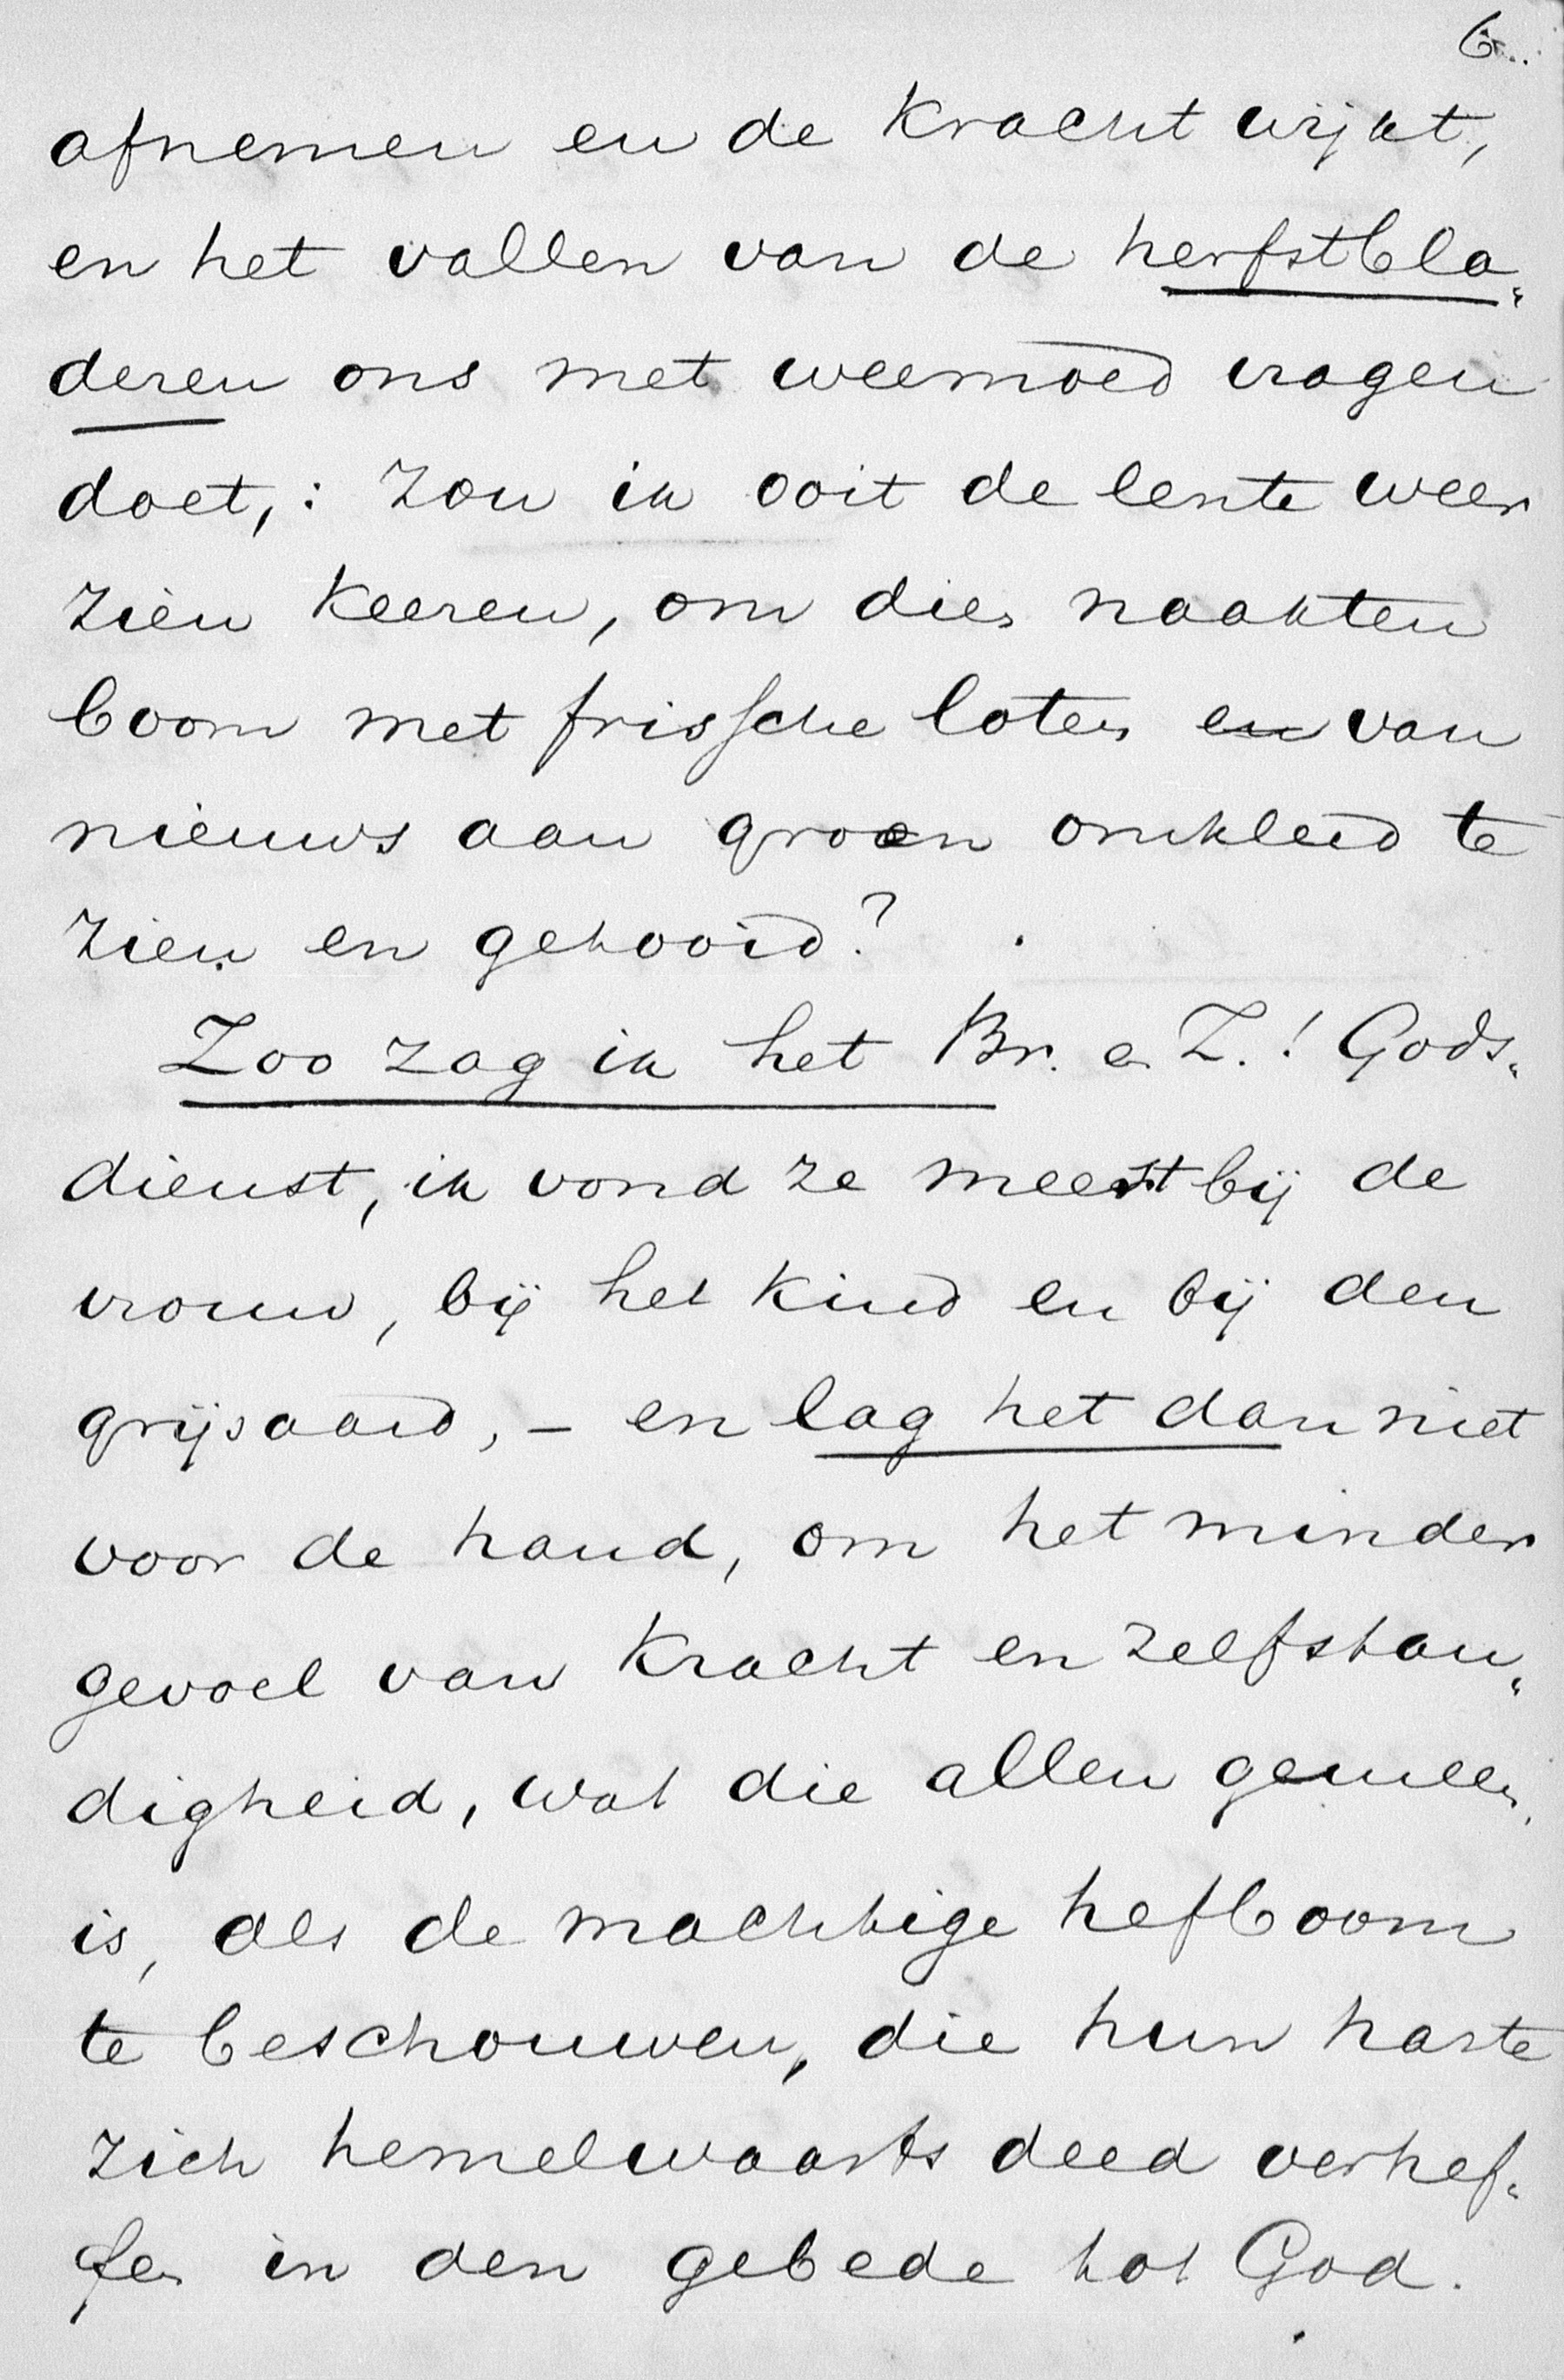 6
afnemen en de kracht wijkt,
en het vallen van de herfstbla„
deren ons met weemoed vragen
doet,: zou ik ooit de lente weer
zien keeren, om dien naakten
boom met frissche loten en van
nieuws aan groen omkleed te
zien en getooid?
Zoo zag ik het Br. en Z.! Gods„
dienst, ik vond ze meest bij de
vrouw, bij het kind en bij den
grijsaard, – en lag het dan niet
voor de hand, om het minder
gevoel van kracht en zelfstan„
digheid, wat die allen gemeen
is, als de machtige hefboom
te beschouwen, die hun harte
zich hemelwaarts deed verhef„
fen in den gebede tot God.